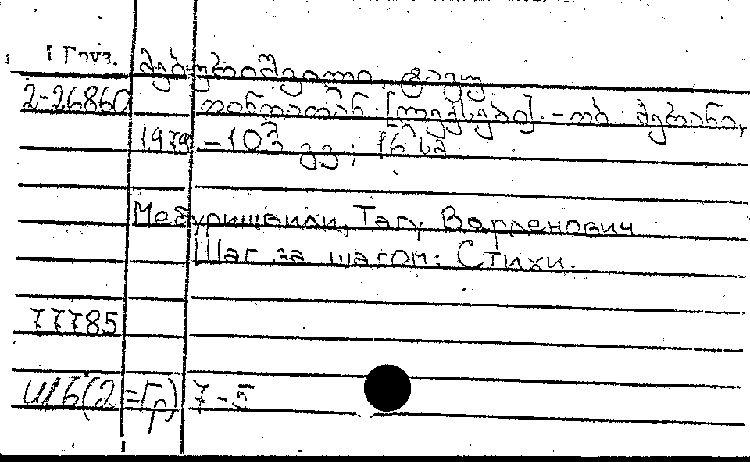 1 Груз. მებურიშვილი ტაგუ
2-26860 თანდათან [ლექსები]. - თბ. მერანი,
1979 - 103 გვ; 16 სმ
Мебуришвили, Тагу Варденович
Шаг за шагом: Стихи.
77785
И16(2=Гр)7-5